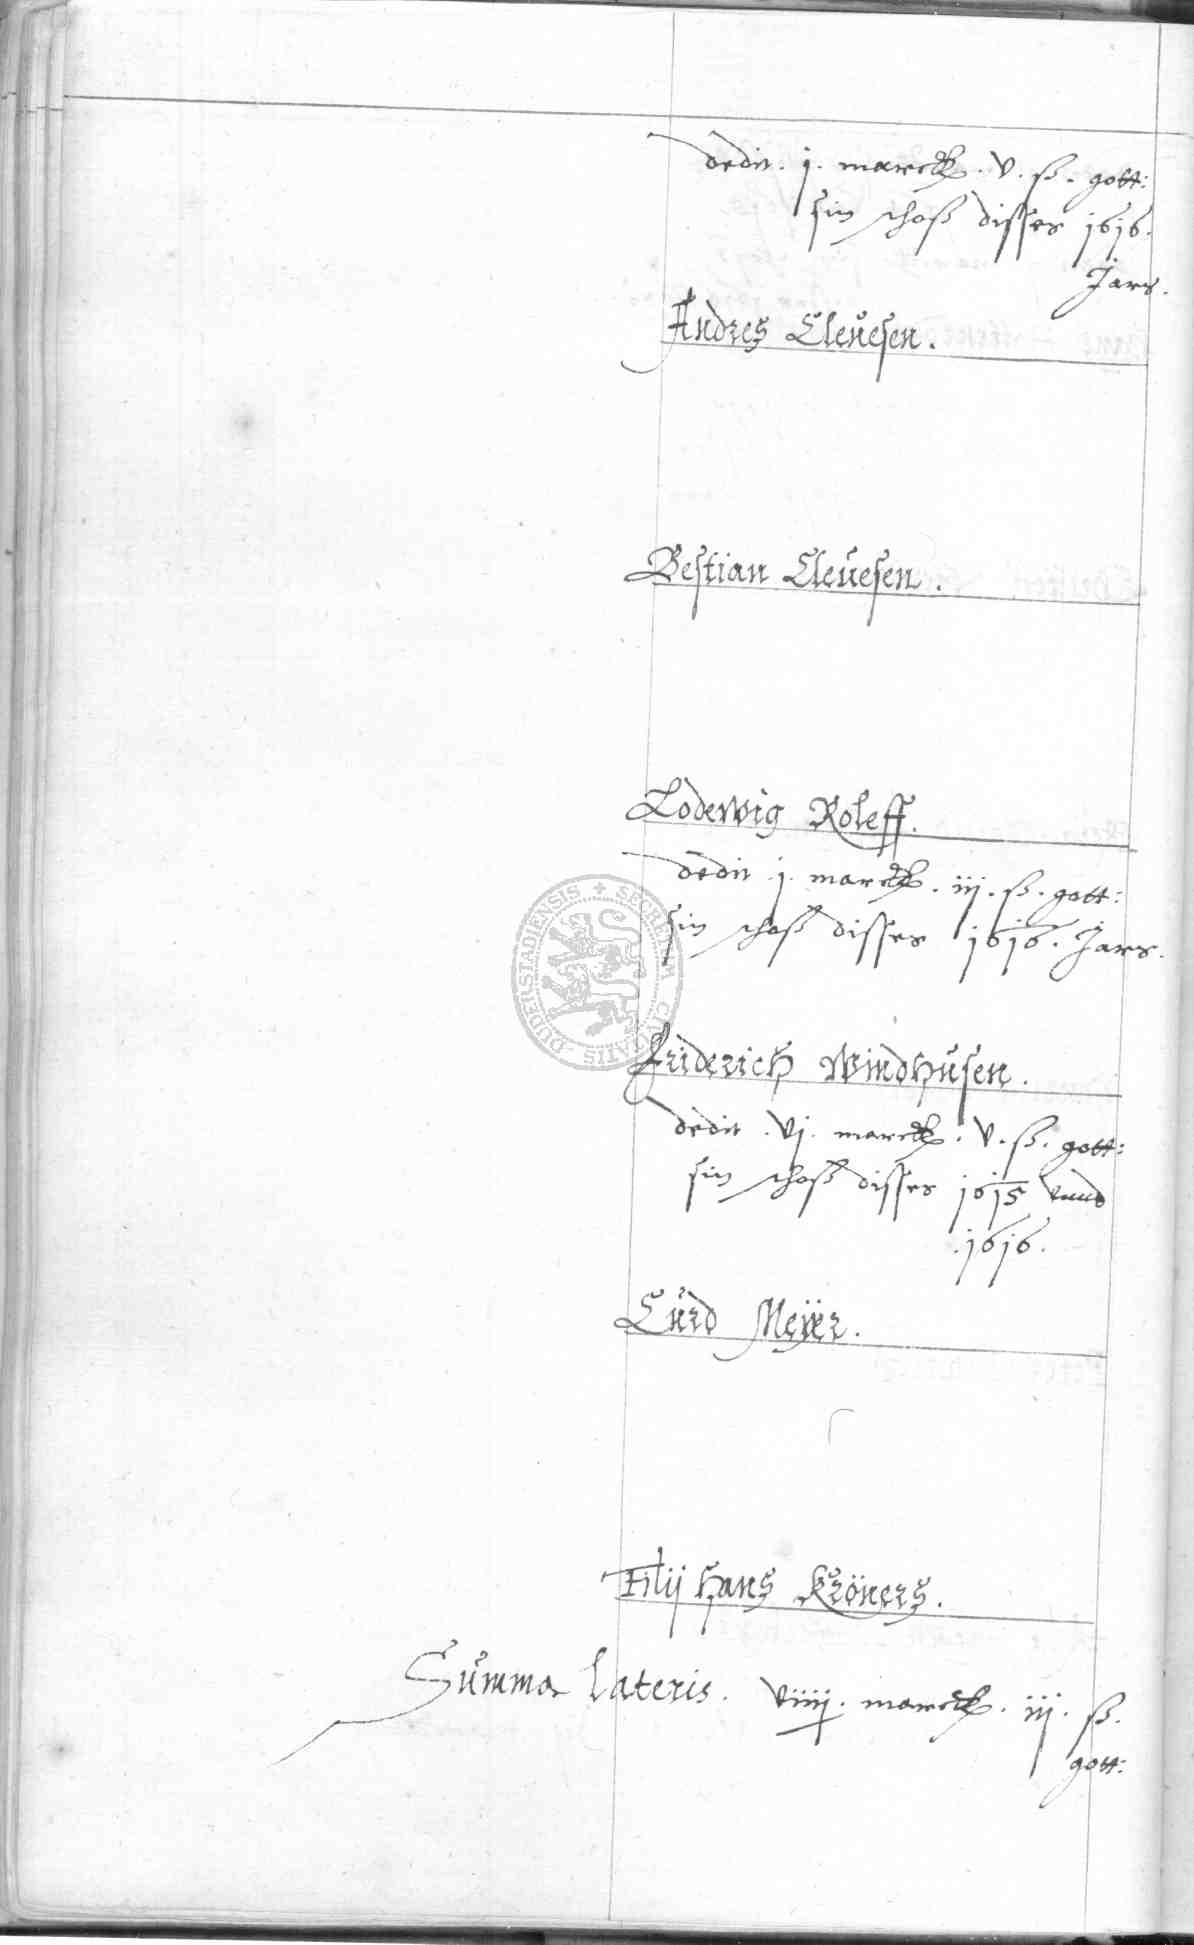 dedit . j . marck . v . ß . gott:
sin schoß disses 1616.
Jars.
Andres Cleuesen .
Bestian Cleuesen .
Lodewig Roleff .
dedit j . marck . iij . ß . gott:
sin schoß disses 1616 . Jars .
SECRETUM CIVITATIS DUDERSTADIENSIS
Friderich Windhusen .
dedit . vj . marck . v . ß . gott:
sin schoß disses 1615 vnnd
. 1616 .
Curd Meÿer .
Filij Hans Kröners .
Summa Lateris . viiij . marck . iij . ß .
gott: